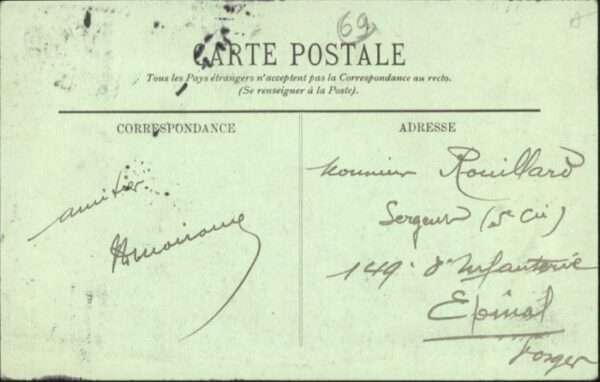 69
CARTE POSTALE
Tous les Pays étrangers n'acceptent pas la Correspondance au recto.
(Se renseigner à la Poste).
CORRESPONDANCE
amitiés
ADRESSE
Monsieur Rouillard
Sergent (5e Cie)
149e d'Infanterie
Epinal
Vosges